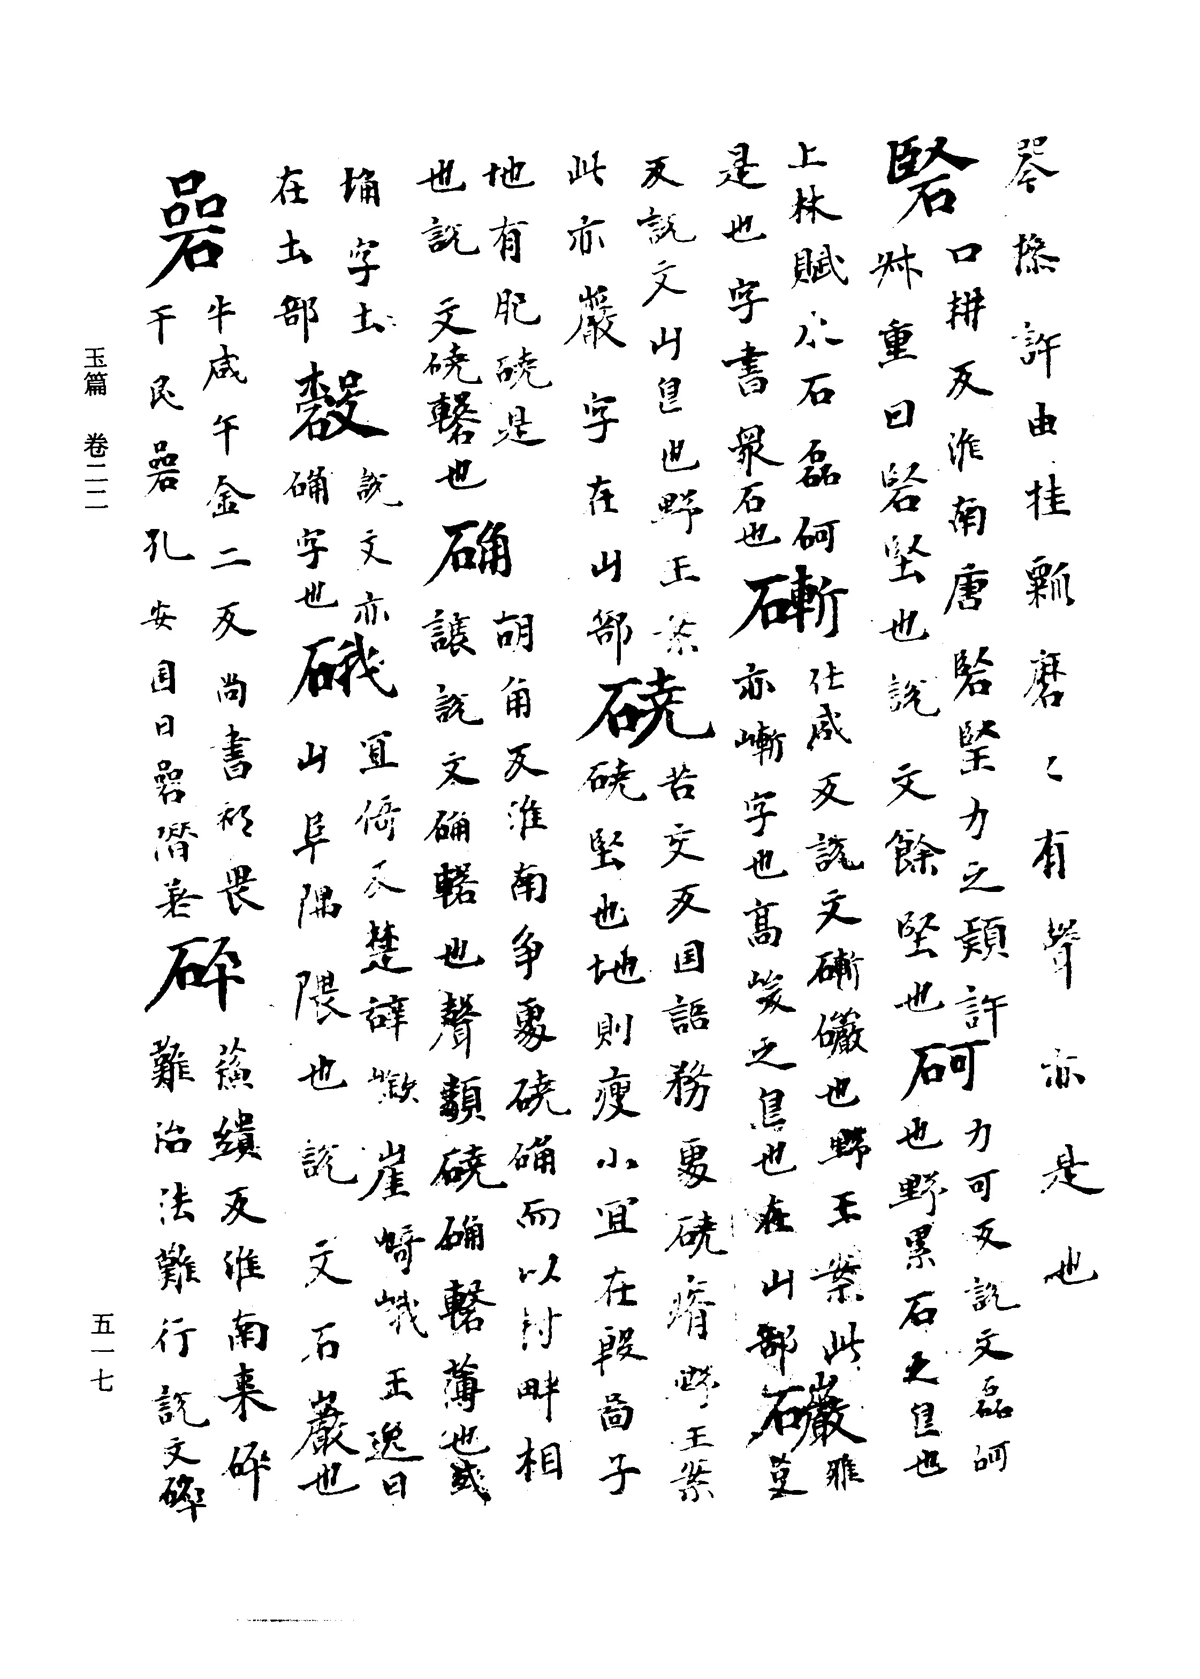 琴操許由挂瓢磨々有聲亦是也
硻
口耕反淮南唐硻堅力之類許
叔重曰硻堅也說文餘堅也
砢
力可反說文磊砢
也野累石之皃也
上林賦水石磊砢
是也字書眾石也
磛
仕咸反說文磛礹也野王案此
亦嶃字也高峻之皃也在山部
礹
雅
反說文山皃也野王案
此亦巖字在山部
磽
苦交反国語務要磽瘠野王案
磽堅也地則瘦小冝在段啚子
地有肥磽是
也說文磽䃘也
确
胡角反淮南争處磽确而以封畔相
讓說文确䃘也聲類磽确䃘薄也或
埆字土
在土部
㱿
說文亦
确字也
硪
冝倚反楚辭嶔崖崎峨王逸曰
山阜隅隈也說文石巖也
碞
牛咸午金二反尚書畏
于民碞孔安国曰碞潛差
碎
蘇繢反淮南来碎
難治法難行說文碎
玉篇 卷二二
五一七